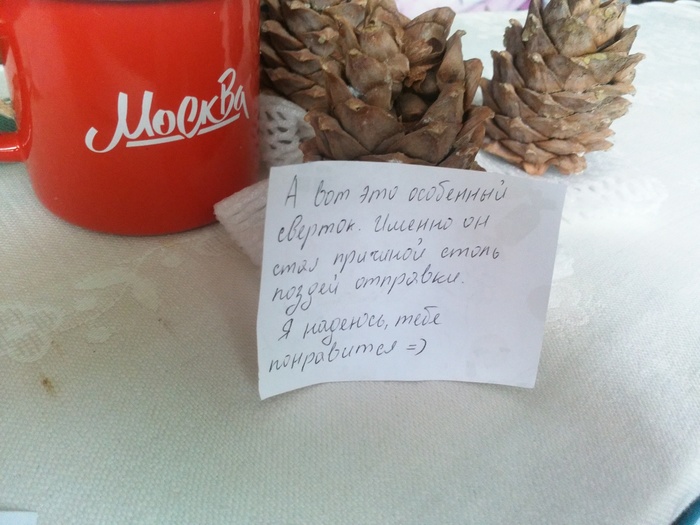 Москва
А вот это особенный
сверток. Именно он
стал причиной столь
поздей отправки.
Я надеюсь, тебе
понравится =)